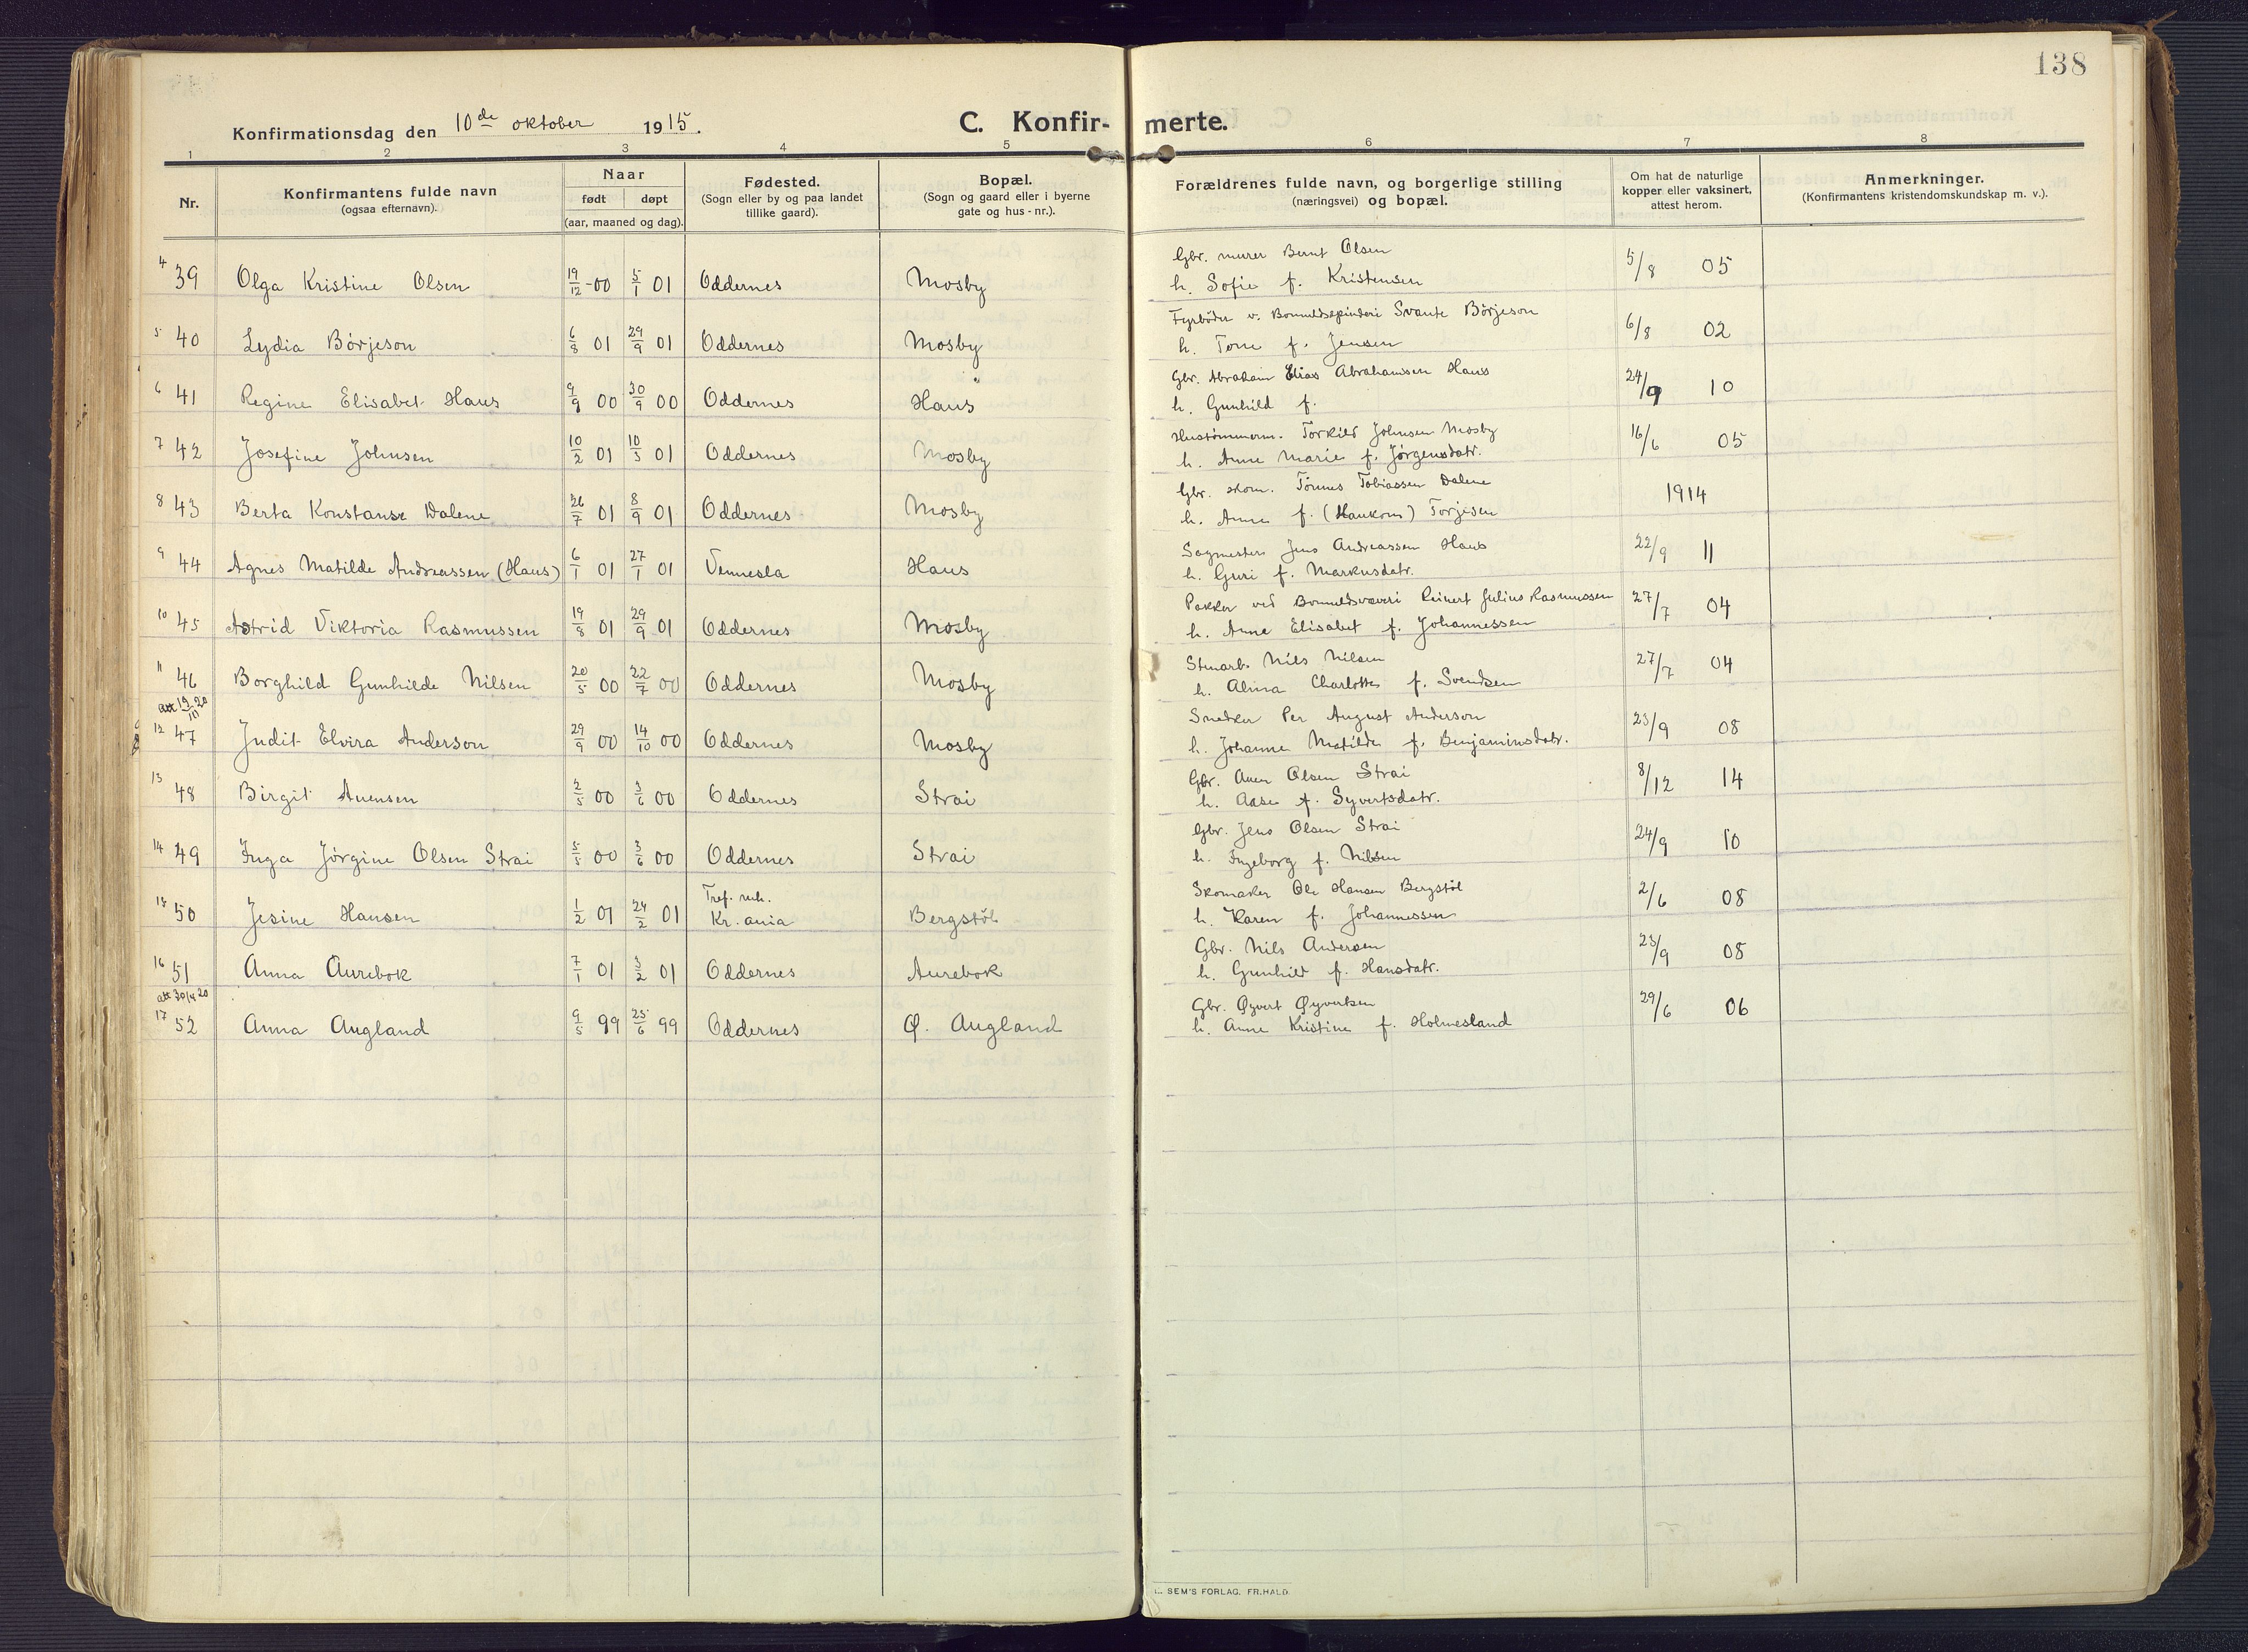 138
Konfirmationsdag den 10de oktober 1915.
C. Konfir- merte.
1 2 3 4 5 6 7 8
Nr.
Konfirmantens fulde navn
(ogsaa efternavn).
Naar
født døpt
(aar, maaned og dag).
Fødested.
(Sogn eller by og paa landet
tillike gaard).
Bopæl.
(Sogn og gaard eller i byerne
gate og hus-nr.).
Forældrenes fulde navn, og borgerlige stilling
(næringsvei) og bopæl.
Om hat de naturlige
kopper eller vaksinert,
attest herom.
Anmerkninger.
(Konfirmantens kristendomskundskap m. v.).
Gbr. murer Bernt Olsen
4 39 Olga Kristine Olsen 19/12-00 5/1 01 Oddernes Mosby h. Sofie f. Kristensen 5/8 05
Fyrbøder v. Bomuldspinderi Svante Börjeson
5 40 Lydia Börjeson 6/8 01 29/9 01 Oddernes Mosby h. Tone f. Jensen 6/8 02
Gbr. Abraham Elias Abrahamsen Haus
6 41 Regine Elisabet Haus 9/9 00 30/9 00 Oddernes Haus h. Gunhild f. 24/9 10
Hustömmerm. Torkild Johnsen Mosby
7 42 Josefine Johnsen 10/2 01 10/3 01 Oddernes Mosby h. Anne Marie f. Jörgensdatr. 16/6 05
Gbr. skom. Tönnes Tobiassen Dalene
8 43 Berta Konstanse Dalene 26/7 01 8/9 01 Oddernes Mosby h. Anne f. (Haukom) Torjesen 1914
Sagmester Jens Andreassen Haus
9 44 Agnes Matilde Andreassen (Haus) 6/1 01 27/1 01 Vennesla Haus h. Guri f. Markusdatr. 22/9 11
Pakker ved Bomuldsvæveri Reinert Julius Rasmussen
10 45 Astrid Viktoria Rasmussen 19/8 01 29/9 01 Oddernes Mosby h. Anne Elisabet f. Johannessen 27/7 04
Stuarb. Nils Nilsen
11 46 Borghild Gunhilde Nilsen 20/5 00 22/7 00 Oddernes Mosby h. Alma Charlotte f. Svendsen 27/7 04
att 19/III 20
Snedker Per August Anderson
12 47 Judit Elvira Anderson 29/9 00 14/10 00 Oddernes Mosby h. Johanne Matilde f. Benjaminsdatr. 23/9 08
Gbr. Aven Olsen Strai
13 48 Birgit Avensen 2/5 00 3/6 00 Oddernes Strai h. Aase f. Syvertsdatr. 8/12 14
Gbr. Jens Olsen Strai
14 49 Inga Jörgine Olsen Strai 5/5 00 3/6 00 Oddernes Strai h. Ingeborg f. Nilsen 24/9 10
Skomaker Ole Hansen Bergstöl
15 50 Jesine Hansen 1/2 01 24/2 01 Tref. mh. Kr.ania Bergstöl h. Karen f. Johannessen 2/6 08
Gbr. Nils Andersen
16 51 Anna Aurebok 7/1 01 3/2 01 Oddernes Aurebok h. Gunhild f. Hansdatr. 23/9 08
att 30/4 20
Gbr. Øyvert Øyvertsen
17 52 Anna Augland 9/5 99 25/6 99 Oddernes Ø. Augland h. Anne Kristine f. Holmesland 29/6 06
L. SEM'S FORLAG, FR.HALD.